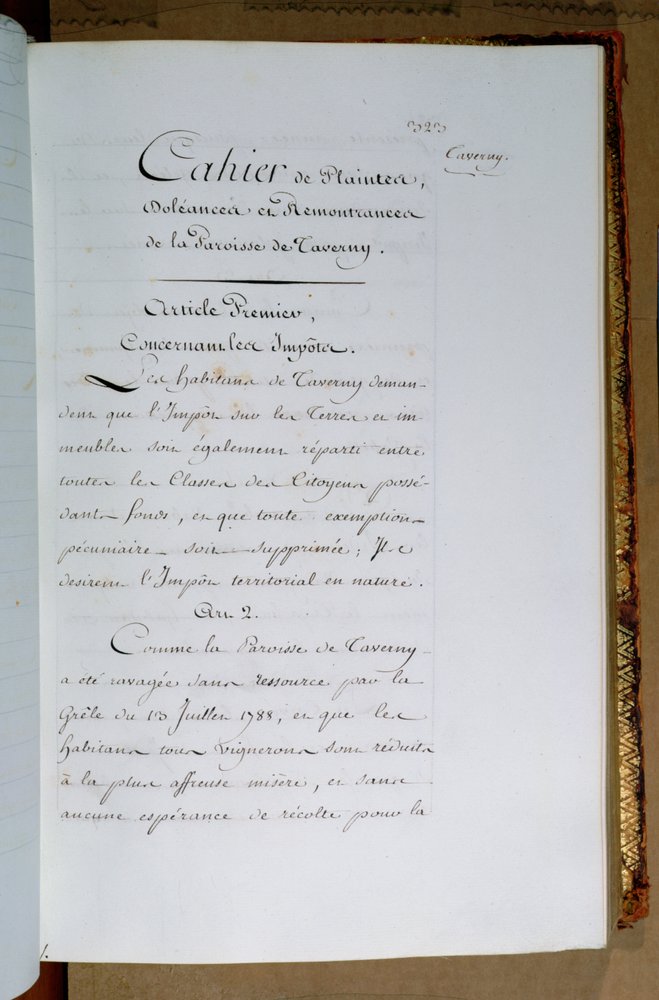 323
Taverny.
Cahier de Plaintes,
Doléances et Remontrances
de la Paroisse de Taverny.
Article Premier,
Concernant les Impôts.
Les habitans de Taverny deman-
dent que l'Impôt sur les Terres et im-
meubles soit également réparti entre
toutes les Classes des Citoyens possé-
dant fonds, et que toute exemption
pécuniaire soit supprimée; Ils
desirent l'Impôt territorial en nature.
Art. 2.
Comme la Paroisse de Taverny
a été ravagée sans ressource par la
Grêle du 13 Juillet 1788, et que les
habitans tous vignerons sont réduits
à la plus affreuse misère, et sans
aucune espérance de récolte pour la